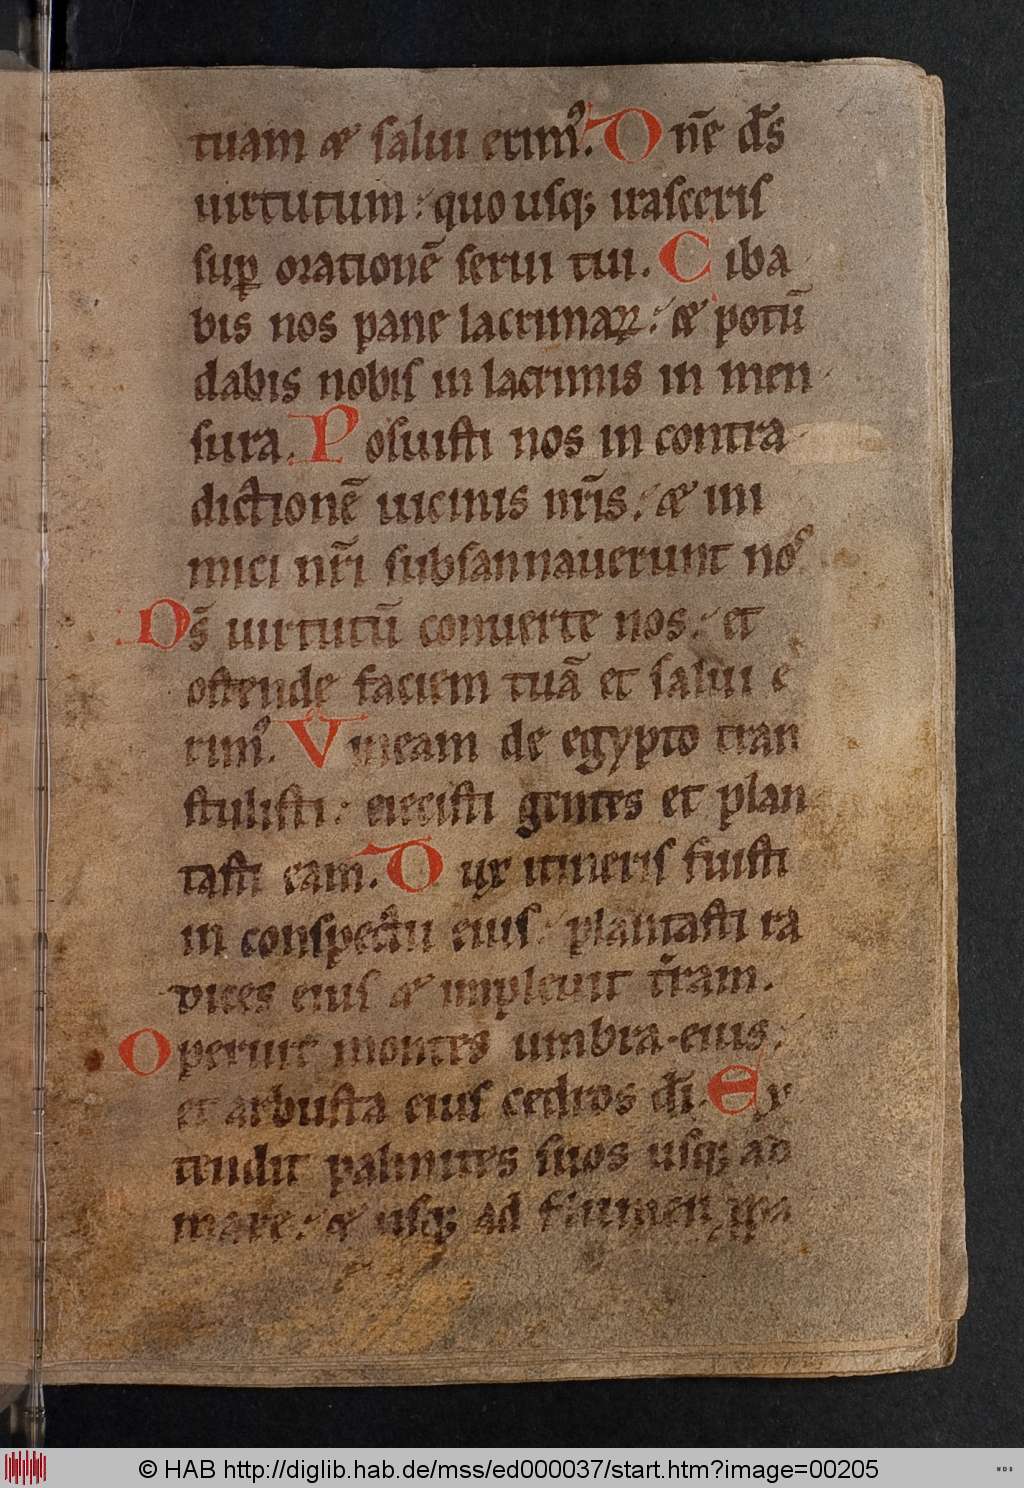 tuam & salui erimꝰ. Dn̄e ds̄
uirtutum : quo usq; irasceris
suꝑ orationē serui tui. Ciba
bis nos pane lacrimaꝝ : & potū
dabis nobis in lacrimis in men
sura. Posuisti nos in contra
dictionē uicinis nr̄is : & ini
mici nr̄i subsannauerunt nos
Ds̄ uirtutū conuerte nos : et
ostende faciem tuā et salui e
rimꝰ. Vineam de egypto tran
stulisti : eiecisti gentes et plan
tasti eam. Dux itineris fuisti
in conspectu eius : plantasti ra
dices eius & impleuit t̄ram.
Operuit montes umbra eius :
et arbusta eius cedros dī. Ex
tendit palmites suos usq; ad
mare : & usq; ad flumen ꝓpa
© HAB http://diglib.hab.de/mss/ed000037/start.htm?image=00205